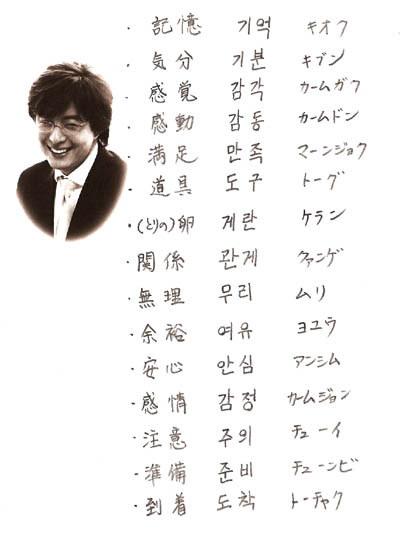 ・記憶 기억 キオク
・気分 기분 キブン
・感覚 감각 カームガク
・感動 감동 カームドン
・満足 만족 マーンジョク
・道具 도구 トーグ
・(とりの)卵 계란 ケラン
・関係 관계 クァンゲ
・無理 무리 ムリ
・余裕 여유 ヨユウ
・安心 안심 アンシム
・感情 감정 カームジョン
・注意 주의 チューイ
・準備 준비 チューンビ
・到着 도착 トーチャク